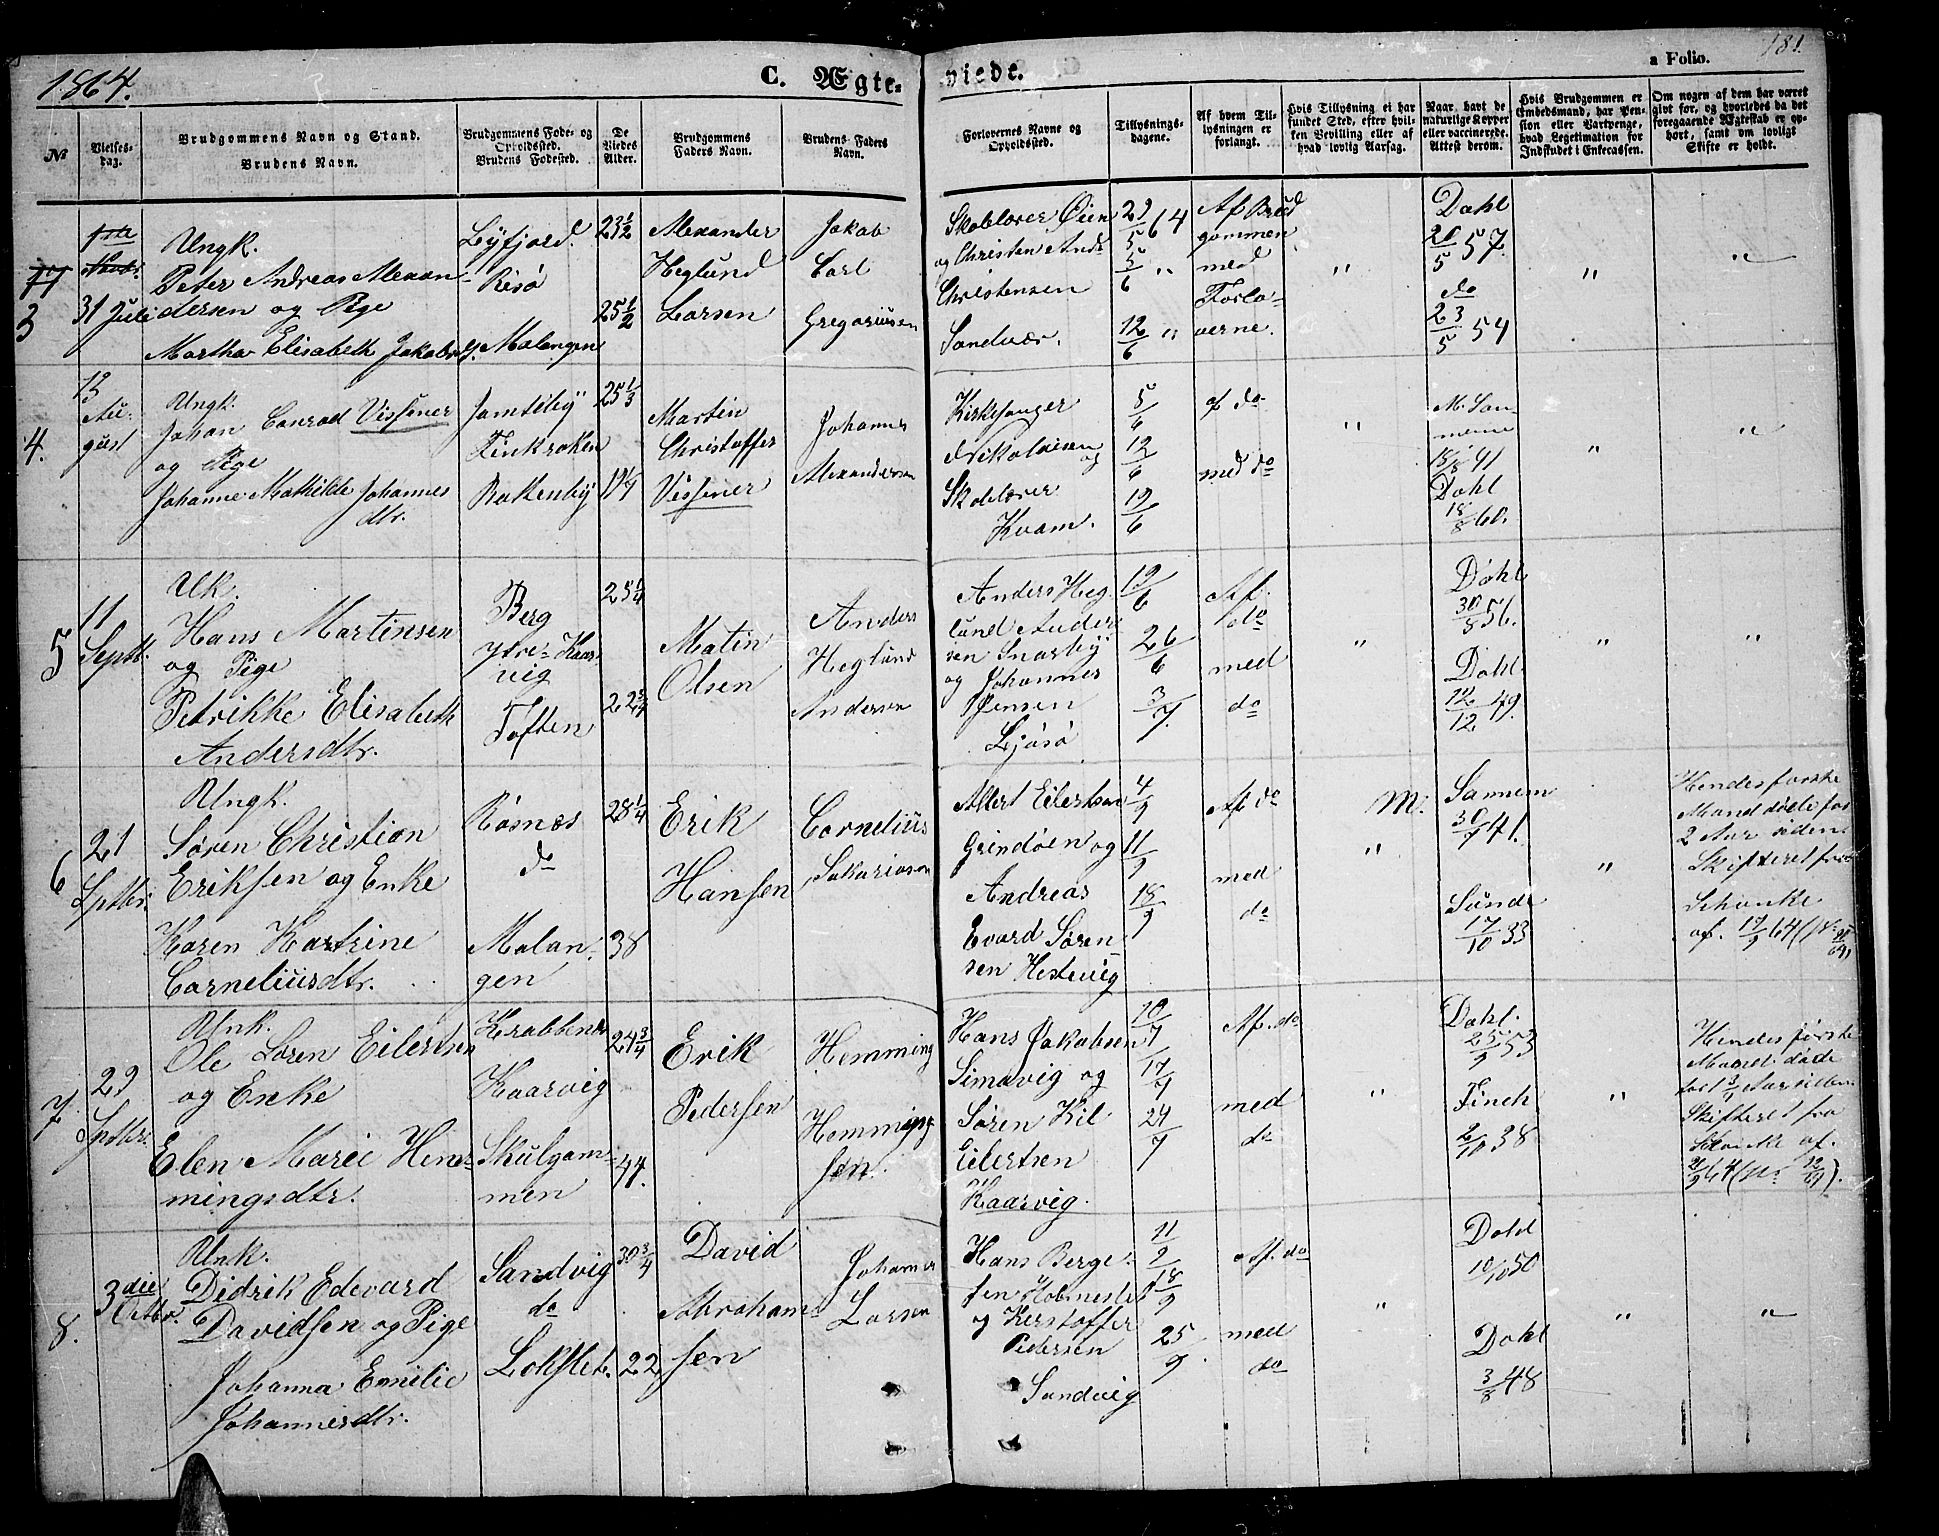 1864.
C. Ægte-
viede.
a Folio.
181
No
Vielses-
dag.
Brudgommens Navn og Stand.
Brudens Navn.
Brudgommens Føde- og
Opholdssted.
Brudens Fødested.
De
Viedes
Alder.
Brudgommens
Faders Navn.
Brudens Faders
Navn.
Forlovernes Navne og
Opholdssted.
Tillysnings-
dagene.
Af hvem Til-
lysningen er
forlangt.
Hvis Tillysning ei har
fundet Sted, efter hvil-
ken Bevilling eller af
hvad lovlig Aarsag.
Naar havt de
naturlige Kopper
eller vaccinerede.
Attest derom.
Hvis Brudgommen er
Embedsmand, har Pen-
sion eller Vartpenge,
hvad Legetimation for
Indskudet i Enkecassen.
Om nogen af dem har været
givt før, og hvorledes da det
foregaaende Ægteskab er op-
hørt, samt om lovligt
Skifte er holdt.
3
31 Juli
Ungk.
Peter Andreas Alexan-
dersen og Pige
Martha Elisabeth Jakobsd.
Lyfjord.
Risø
Malangen
23 1/2
25 1/2
Alexander
Heglund
Larsen
Jakob
Carl
Gregoriusen
Skolelærer Øien
og Christen Andr
Christensen
Sandvær.
29/5 64
5/6 "
12/6 "
Af Brud
gommen
med
Forlo-
verne.
"
Dahl
20/5 57.
do
23/5 54
"
"
4.
13
Au-
gust
Ungk.
Johan Conrad Vissener
og Pige
Johanne Mathilde Johannes
dtr.
Jamteby
Finkroken
Rakenby
25 1/3
19 1/4
Martin
Christoffer
Vissener
Johannes
Alexandersen
Kirkesanger
Nikolaisen
og
Skolelærer
Kvam.
5/6
12/6
19/6
af do
med do
"
M. San-
nemne
15/8 41
Dahl
18/8 60.
"
"
5
11
Septb.
Uk.
Hans Martinsen
og Pige
Petrikke Elisabeth
Andersdtr.
Berg
ytre Kaar-
vig
Toften
25 1/4
22 3/4
Matin
Olsen
Anders
Heglund
Andersen
Anders Heg-
lund Ander-
sen Snarby
og Johannes
Jensen
Ljøsø
19/6
26/6
3/7
Af
do
med
do
"
Dahl
30/8 56.
Dahl
12/12 49.
"
"
6
21
Sptbr.
Ungk.
Søren Christian
Eriksen og Enke
Karen Kartrine
Corneliusdtr.
Røsnes
do
Malan-
gen
28 1/4
38
Erik
Hansen
Cornelius
Sakariasen
Albert Eilertsen
Grindøen og
Andreas
Evard Søren-
sen Hestevig
4/9
11/9
18/9
Af do
med
do
"
M. Sannem
30/7 41.
Sunde
17/10 33
"
Hendes første
Mand døde for
2 Aar siden.
Skifteret fra
Schanke
af. 19/9 64
7.
29
Sptbr.
Unk.
Ole Søren Eilertsen
og Enke
Elen Marie Hem-
mingsdtr.
Krabbenes
Kaarvig
Skulgam-
men
24 3/4
44.
Erik
Pedersen
Hemming
Hemming-
sen.
Hans Jakobsen
Simavig og
Søren Kil
Eilertsen
Kaarvig.
10/7
17/7
24/7
Af. do
med
do
"
Dahl.
25/9 53
Finch
2/10 38
"
Hendes første
Mand døde
for 1 3/4 Aar siden.
Skifteret fra
Schanke af.
8.
3die
Octbr.
Unk.
Didrik Edevard
Davidsen og Pige
Johanna Emilie
Johannesdtr.
Sandvig
do
Lokslet.
30 3/4
22
David
Abraham-
sen
Johannes
Larsen
Hans Berge-
sen Holmeslet
og Kerstoffer
Pedersen
Sandvig
11/9
18/9
25/9
Af. do
med
do
"
Dahl
10/10 50
Dahl
3/8 48
"
"